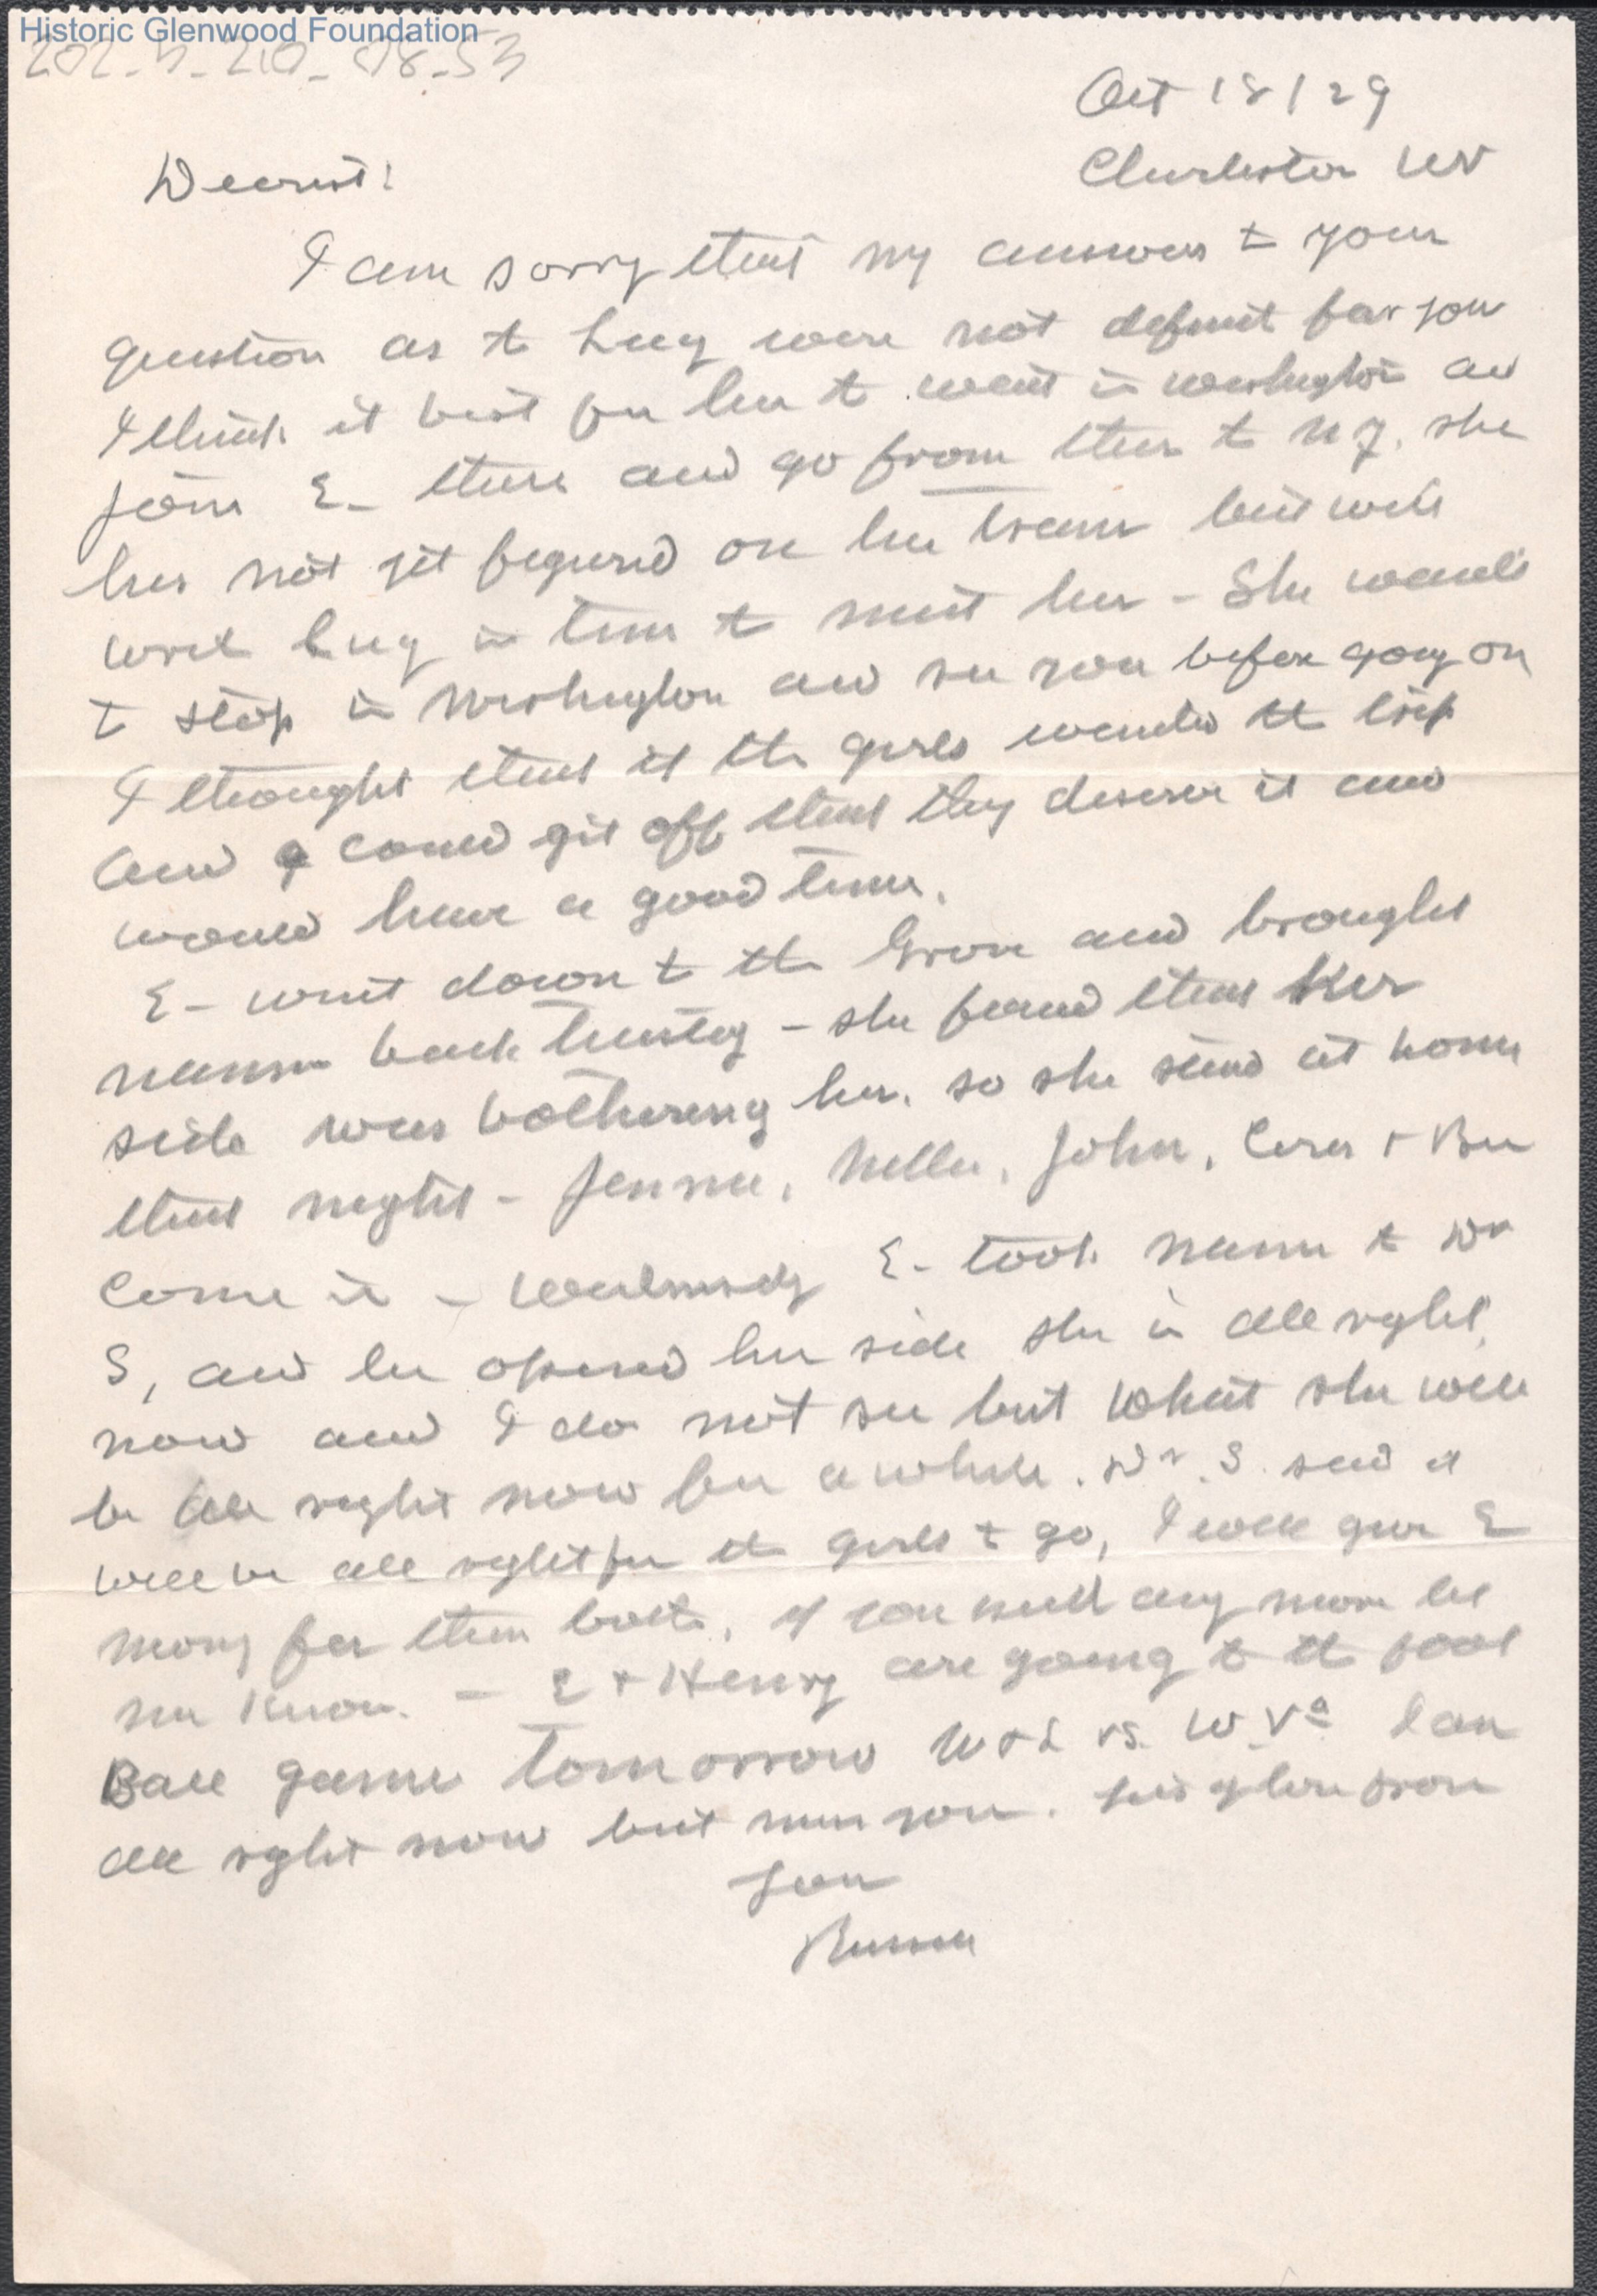 Historic Glenwood Foundation
Oct 18/29
Charleston WV
Dearest:
I am sorry that my answers to your
question as to Lucy were not definit for you
I think it best for her to wait in Washington and
join E- there and go from there to N Y. she
has not yet figured on her train but will
write Lucy in time to meet her - She wants
to stop in Washington and see you before going on
I thought that if the girls wanted the trip
and could get off that they deserve it and
would have a good time.
E- went down to the Grove and brought
back - she found that her
side was bothering her. so she staid at home
that night - Jennie, Nelle, John, & Bee
come in - Wednesday E- took to Dr
S, and he opened her side she is all right
now and I do not see but what she will
be all right now for a while. Dr. S. said it
will be all right for the girls to go, I will give E
money for them both, if you need any more let
me know. - E & Henry are going to the foot
Ball game tomorrow W & L vs. W.Va I am
all right now but miss you.